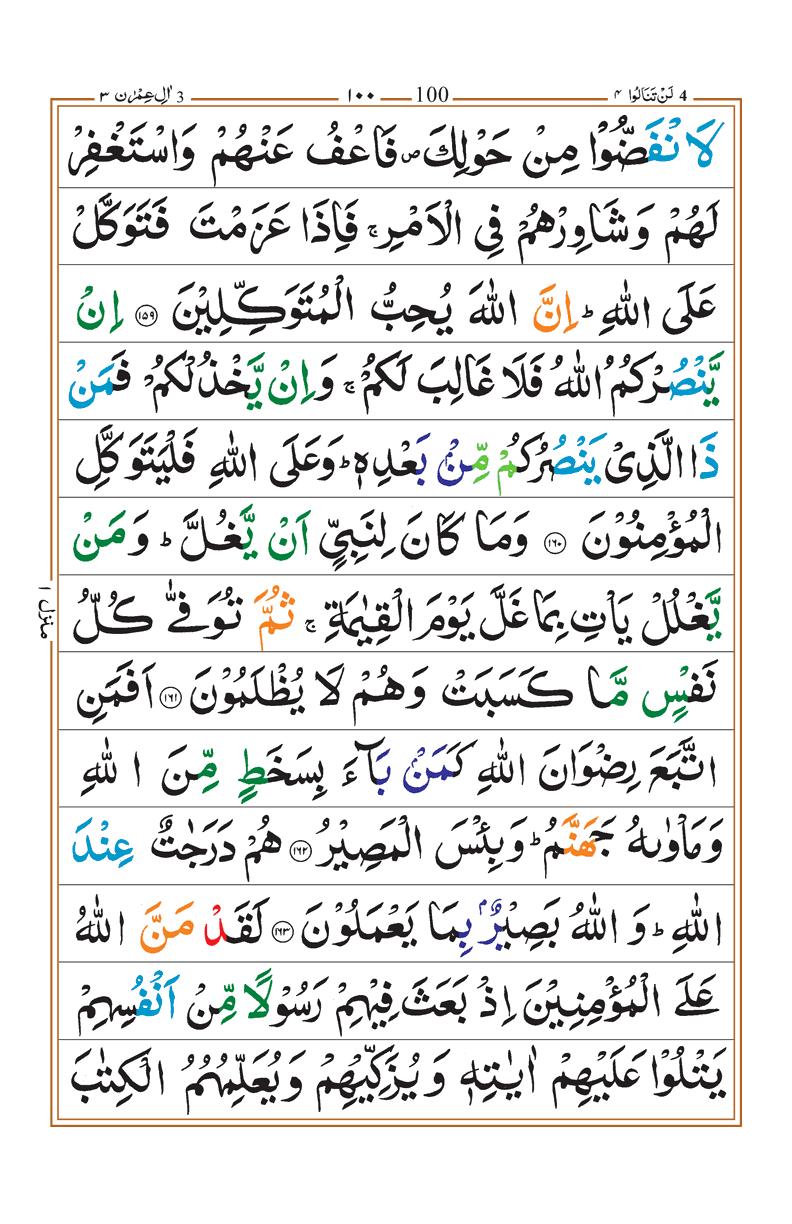 4 لَنْ تَنَالُوا ۴ 100 ١٠٠ 3 اٰلِ عِمْرٰن ۳
لَا نْفَضُّوْا مِنْ حَوْلِكَ ص فَاعْفُ عَنْهُمْ وَاسْتَغْفِرْ
لَهُمْ وَشَاوِرْهُمْ فِي الْاَمْرِ ج فَاِذَا عَزَمْتَ فَتَوَكَّلْ
عَلَى اللّٰهِ ط اِنَّ اللّٰهَ يُحِبُّ الْمُتَوَكِّلِيْنَ ۝۱۵۹ اِنْ
يَّنْصُرْكُمُ اللّٰهُ فَلَا غَالِبَ لَكُمْ ج وَاِنْ يَّخْذُلْكُمْ فَمَنْ
ذَا الَّذِيْ يَنْصُرُكُمْ مِّنْ بَعْدِهٖ ط وَعَلَى اللّٰهِ فَلْيَتَوَكَّلِ
الْمُؤْمِنُوْنَ ۝۱۶۰ وَمَا كَانَ لِنَبِيٍّ اَنْ يَّغُلَّ ط وَمَنْ
يَّغْلُلْ يَاْتِ بِمَا غَلَّ يَوْمَ الْقِيٰمَةِ ج ثُمَّ تُوَفّٰى كُلُّ
نَفْسٍ مَّا كَسَبَتْ وَهُمْ لَا يُظْلَمُوْنَ ۝۱۶۱ اَفَمَنِ
اتَّبَعَ رِضْوَانَ اللّٰهِ كَمَنْ بَآءَ بِسَخَطٍ مِّنَ اللّٰهِ
وَمَاْوٰىهُ جَهَنَّمُ ط وَبِئْسَ الْمَصِيْرُ ۝۱۶۲ هُمْ دَرَجٰتٌ عِنْدَ
اللّٰهِ ط وَ اللّٰهُ بَصِيْرٌۢ بِمَا يَعْمَلُوْنَ ۝۱۶۳ لَقَدْ مَنَّ اللّٰهُ
عَلَى الْمُؤْمِنِيْنَ اِذْ بَعَثَ فِيْهِمْ رَسُوْلًا مِّنْ اَنْفُسِهِمْ
يَتْلُوْا عَلَيْهِمْ اٰيٰتِهٖ وَيُزَكِّيْهِمْ وَيُعَلِّمُهُمُ الْكِتٰبَ
منزل ١